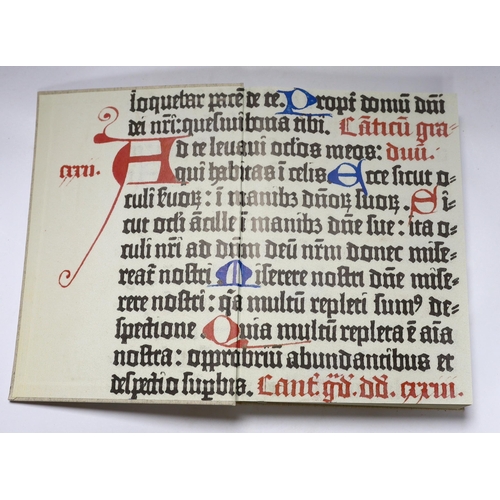 loquebar pacē de te. Propt̄ domū dn̄i
dei nr̄i: quesiui bona tibi. Cāticū gra-
Ad te leuaui oc̄los meos: duū.
cxxii. qui habitas ī celis. Ecce sicut o-
culi ẜuoꝝ: ī manibꝫ dn̄oꝝ suoꝝ. Si-
cut oc̄li ācille ī manibꝫ dn̄e sue: ita o-
culi nr̄i ad dn̄m deū nr̄m donec mise-
reat̄ nostri Miserere nostri dn̄e mise-
rere nostri: qā multū repleti sumꝰ de-
spectione Quia multū repleta ē aīa
nostra: opprobriū abundantibus et
despectio suꝑbis. Cant̄. gͣd. dd̄. cxxiii.